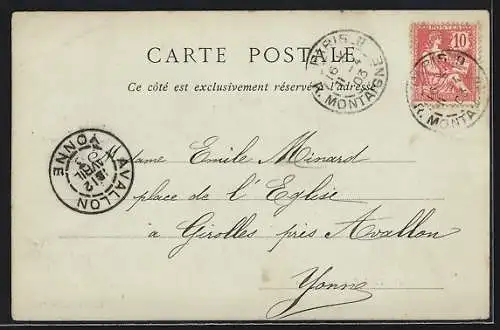 CARTE POSTALE
Ce côté est exclusivement réservé à l'adresse
PARIS 11
R. MONTAIGNE
10
PARIS 11
R. MONTAIGNE
AVALLON
AVRIL
YONNE
Madame Emile Minard
place de l'Eglise
à Girolles près Avallon
Yonne